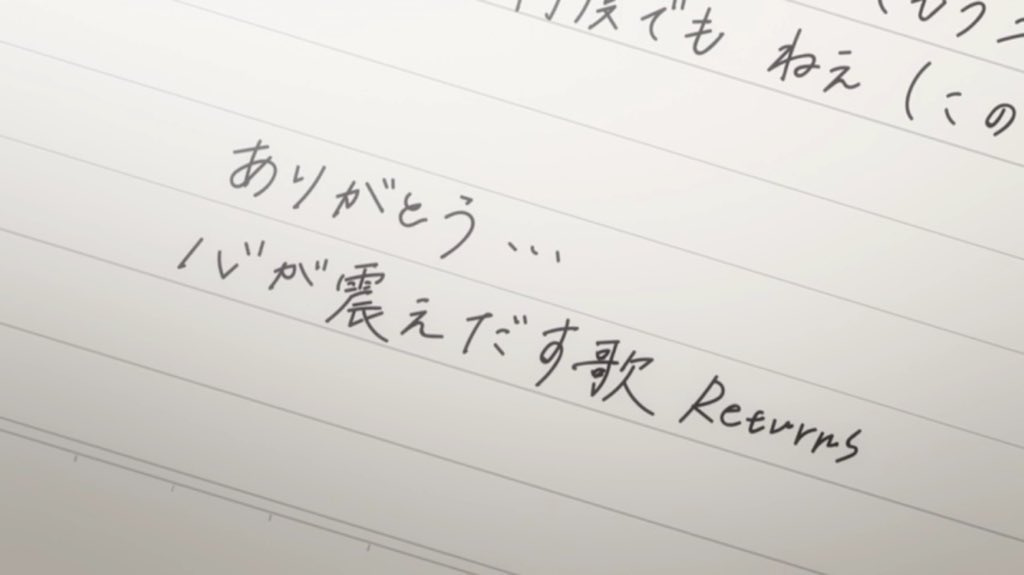 もう
何度でも ねえ (この
ありがとう…
心が震えだす歌 Returns